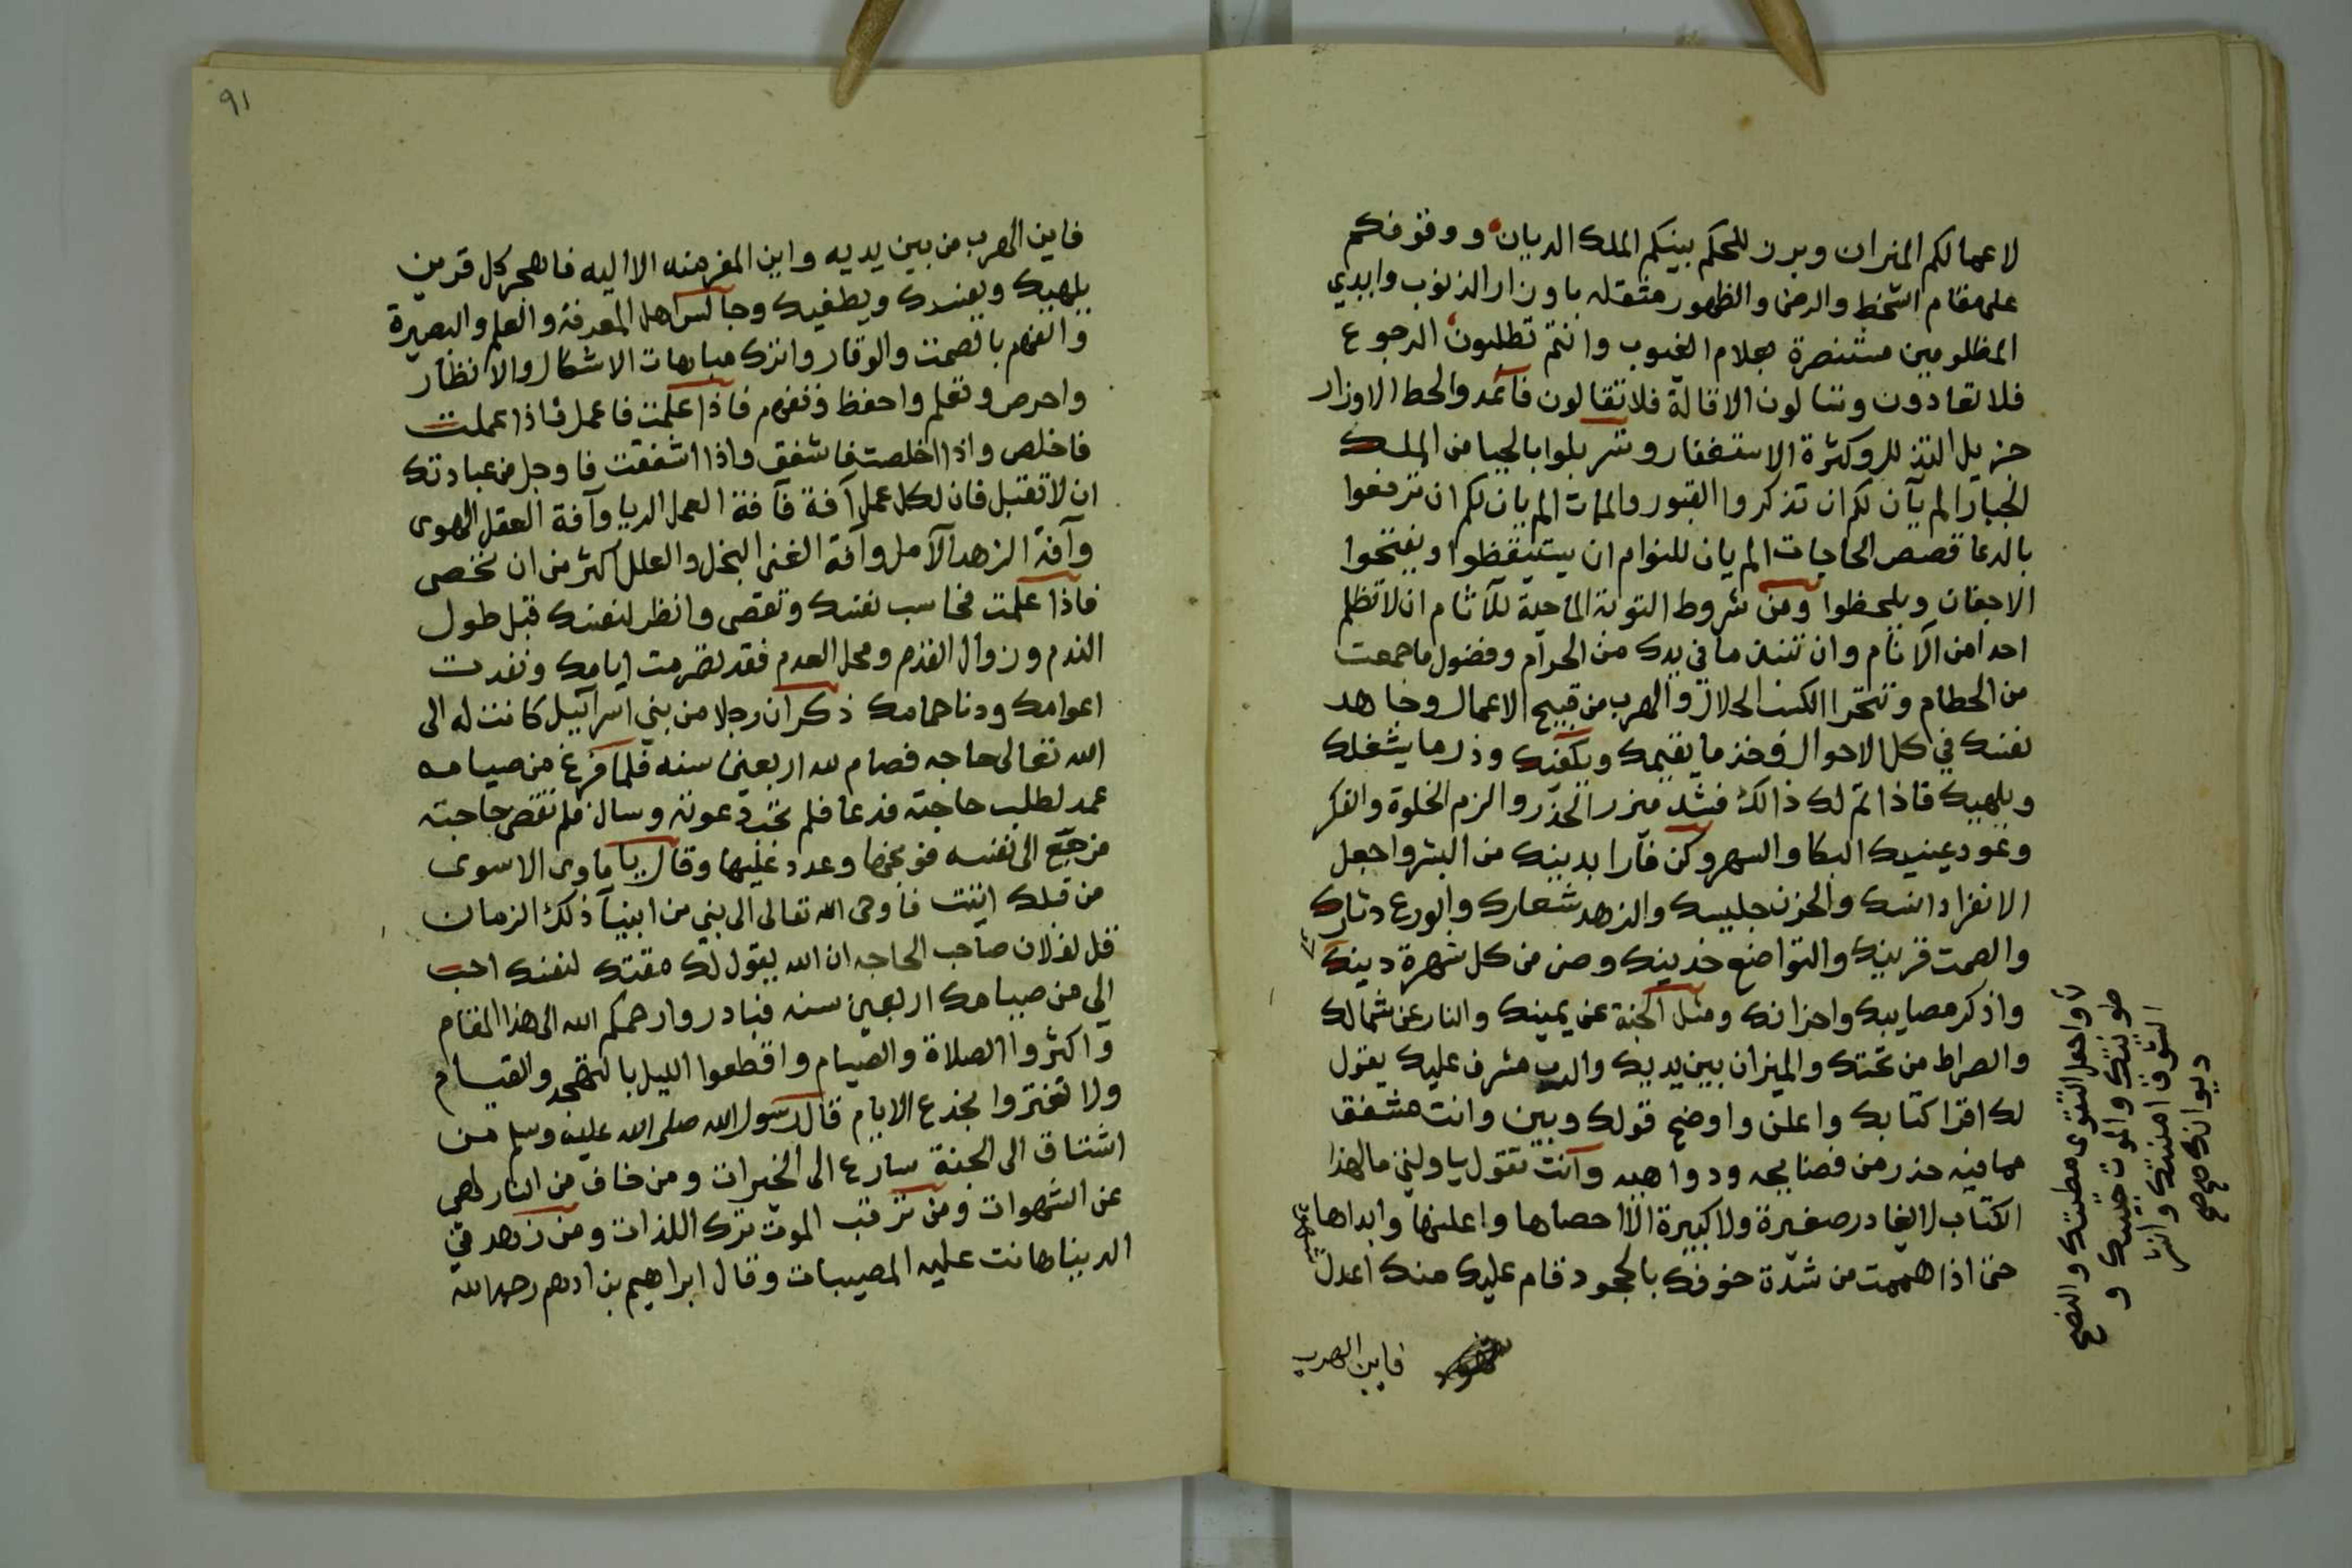 لاعمالكم الميزان وبرز للحكم بينكم الملك الديان ووقوفكم
على مقام السخط والرضى والظهور مثقله باوزار الذنوب وايدي
المظلومين مستنصرة بعلام الغيوب وانتم تطلبون الرجوع
فلا تعادون وتسالون الاقالة فلا تقالون فاعمدوا لحط الاوزار
جزيل التذلل وكثرة الاستغفار وتسربلوا بالحيا من الملك
الجبار الم يآن لكم ان تذكروا القبور والممات الم يان لكم ان ترفعوا
بالدعا قصص الحاجات الم يان للنوام ان يستيقظوا ويفتحوا
الاجفان ويلحظوا ومن شروط التوبة الماحية للآثام ان لا تظلم
احدا من الانام وان تنبذ ما في يدك من الحرام وفضول ما جمعت
من الحطام وتتحرا الكسب الحلال والهرب من قبيح الاعمال وجاهد
نفسك في كل الاحوال وخذ ما يقيمك ويكفيك وذر ما يشغلك
ويلهيك فاذا تم لك ذالك فشد ميزر الحذر والزم الخلوة والفكر
وعود عينيك البكا والسهر وكن فآرا بدينك من البشر واجعل
الانفراد انسك والحزن جليسك والزهد شعارك والورع دثارك
والصمت قرينك والتواضع خدينك وصن من كل شهرة دينك
واذكر مصايبك واحزانك ومثل الجنة عن يمينك والنار عن شمالك
والصراط من تحتك والميزان بين يديك والرب مشرف عليك يقول
لك اقرا كتابك واعلن واوضح قولك وبين وانت مشفق
مما فيه حذر من فضايحه ودواهيه وآنت تقول يا ويلتي مال هذا
الكتاب لا يغادر صغيرة ولا كبيرة الا احصاها واعلنها وابداها
حتى اذا هممت من شدة خوفك بالجحود قام عليك منك اعدل
شهود
فاين الهرب
واجعل التقوى مطيتك والنصح
طويتك والموت جليسك و
الشوق امنيتك و
ديوانك صح صح
٩١
فاين الهرب من بين يديه واين المفر منه الا اليه فاهجر كل قرين
يلهيك ويفسدك ويطغيك وجالس اهل المعرفة والعلم والبصيرة
والفهم بالصمت والوقار واترك مباهات الاشكال والانظار
واحرص وتعلم واحفظ وتفهم فاذا علمت فاعمل فاذا عملت
فاخلص واذا اخلصت فاشفق واذا اشفقت فاوجل من عبادتك
ان لا تقتبل فان لكل عمل آفة فآفة العمل الريا وآفة العقل الهوى
وآفة الزهد الآمل وآفة الغنى البخل والعلل اكثر من ان تحصى
فاذا علمت فحاسب نفسك وتقصى وانظر لنفسك قبل طول
الندم وزوال القدم ومحل العدم فقد تصرمت ايامك ونفدت
اعوامك ودنا حمامك ذكر ان رجلا من بني اسرآييل كانت له الى
الله تعالى حاجه فصام لله اربعين سنه فلما فرغ من صيامه
عمد لطلب حاجته فدعا فلم تجد دعوته وسال فلم تقض حاجته
فرجع الى نفسه فوبخها وعدد عليها وقال يا ماوى الاسوى
من قبلك اتيت فاوحى الله تعالى الى نبي من انبيآ ذلك الزمان
قل لفلان صاحب الحاجه ان الله يقول لك مقتك لنفسك احب
الي من صيامك اربعين سنه فبادروا رحمكم الله الى هذا المقام
واكثروا الصلاة والصيام واقطعوا الليل بالتهجد والقيام
ولا تغتروا بخدع الايام قال رسول الله صلى الله عليه وسلم من
اشتاق الى الجنة سارع الى الخيرات ومن خاف من النار لهى
عن الشهوات ومن ترقب الموت ترك اللذات ومن زهد في
الدنيا هانت عليه المصيبات وقال ابراهيم بن ادهم رحمه الله